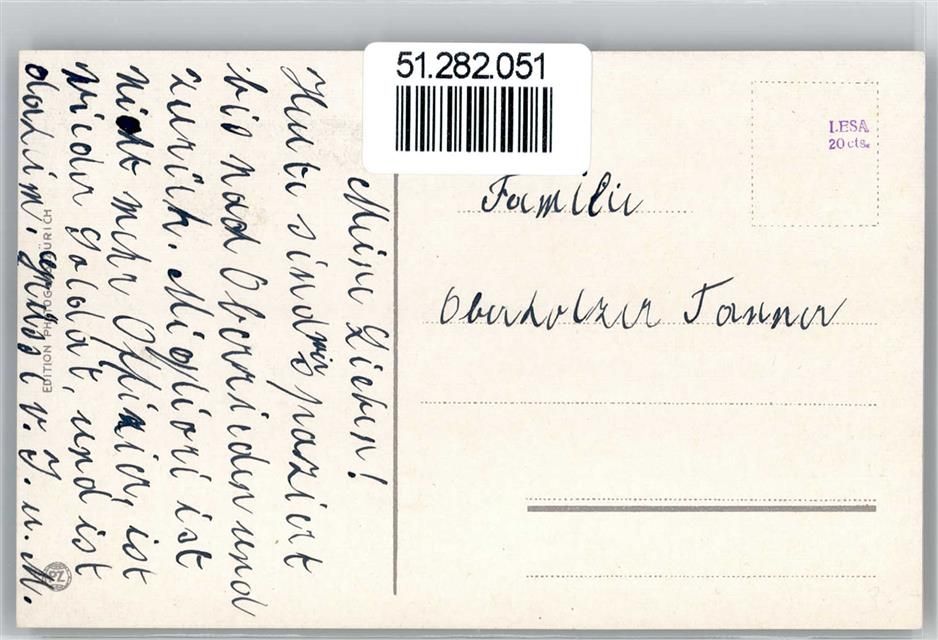 51.282.051
LESA
20 cts.
Meine Lieben!
Heute sind wir spaziert
bis nach Oberrieden und
zurück. Migliori ist
nicht mehr Offizier, ist
wieder Soldat, und ist
daheim. grüsst v. J. u. M.
Familie
Oberholzer Tanner
EDITION PHOTOGLOB ZÜRICH
PZ